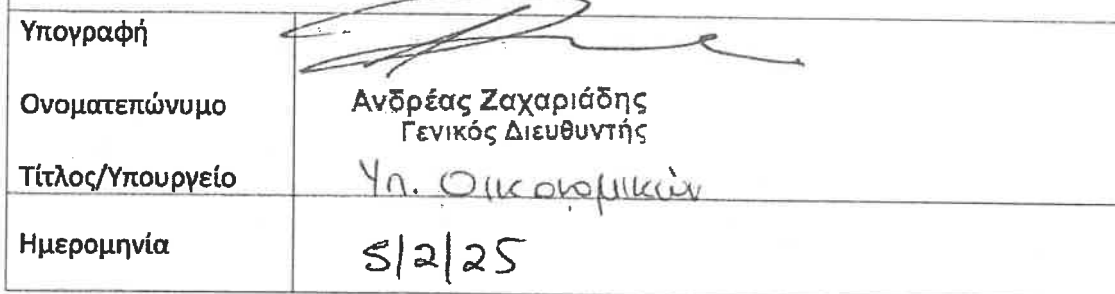 Υπογραφή
Ονοματεπώνυμο Ανδρέας Ζαχαριάδης
Γενικός Διευθυντής
Τίτλος/Υπουργείο Υπ. Οικονομικών
Ημερομηνία 5/2/25